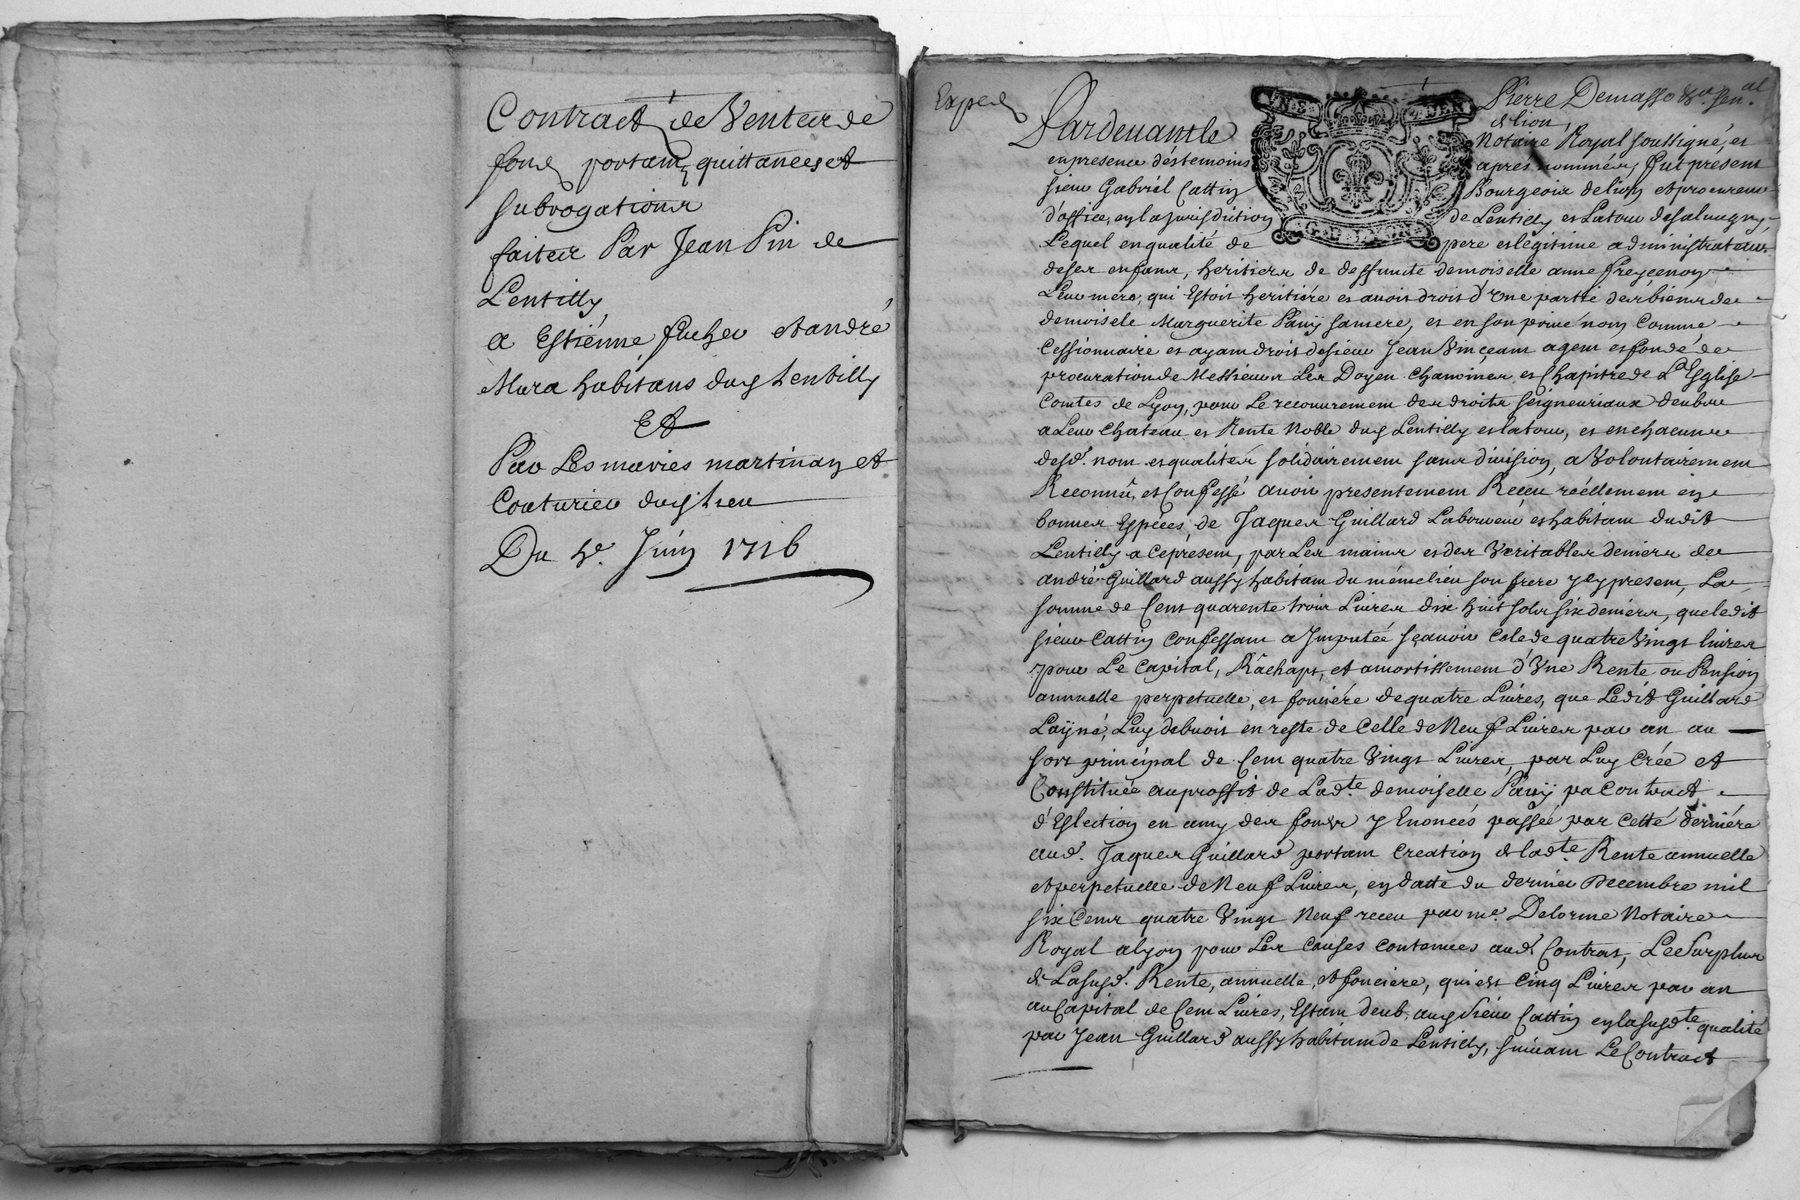 Contract de Ventes de
fond portant quittances et
subrogations
faites Par Jean Pin de
Lentilly
a Estiénne fucher et andré
Mura habitans dud Lentilly
Et
Par Les mariés martinay et
Couturier dud Lieu
Du 4e. Juin 1716
Exped
UNE
GEN
G. DE LYON
Pierre Demasso
& lion
Pardeuant le Notaire Royal soussigné, et
en presence des temoins apres nommés, fut present
sieur Gabriel Cattin Bourgeois de lion et procureur
d'office en la jurisdiction de Lentilly et Latour desaluagny
Lequel en qualité de pere et legitime administrateur
de ses enfans, heritiers de deffuncte demoiselle anne freycenon
Leur mere, qui Estoit heritiére et auoit droit d'Vne partie des biens de
demoisele Marguerite Pauÿ sa mere, et en son privé nom Comme
Cessionnaire et ayant droit de sieur Jean Vinçeant agent et fondé de
procuration de Messieurs Les Doyen Chanoines et Chapitre de L'Eglise
Comtes de Lyon, pour Le recouurement des droits seigneuriaux deubs
a Leur Chateau et Rente Noble dud Lentilly et latour, et en chacune
desd. nom et qualités solidairement sans division, a Volontairement
Reconnu, et Confessé auoir presentement Receu réellement en
bonnes Espéces, de Jaques Guillard Laboureur et habitant dudit
Lentilly a ce present, par Les mains et des Veritables deniers de
andré Guillard aussy habitant du méme lieu son frere ycy present, La
somme de Cent quarente trois Liures dix huit sols six deniers, que ledit
sieur Cattin Confessant a Jmputée sçauoir Cele de quatre Vingt liures
pour Le Capital, Râchapt, et amortissement d'Vne Rente ou Pension
annuelle perpetuelle, et fonciére de quatre Liures, que Ledit Guillard
Laÿné, Luy debuoit en reste de Celle de Neuf Liures par an au
sort principal de Cent quatre Vingt Liures, par Luy Crée et
Constituée au proffit de Ladte. demoiselle Pauÿ par Contract
d'Eslection en amy des fonds y Enoncés passée par Cetté derniére
aud. Jaques Guillard portant Creation de ladte. Rente annuelle
et perpetuelle de Neuf Liures, en datte du dernier Decembre mil
six Cens quatre Vingt Neuf receu par me. Delorme Notaire
Royal a lyon pour Les Causes Contenues aud Contrat, Le Surplus
de Lasusd. Rente, annuelle, et fonciere, qui est Cinq Liures par an
au Capital de Cent Liures, Estant deub, aud Sieur Cattin en lasusdte. qualité
par Jean Guillard aussy habitant de Lentilly, suiuant Le Contract